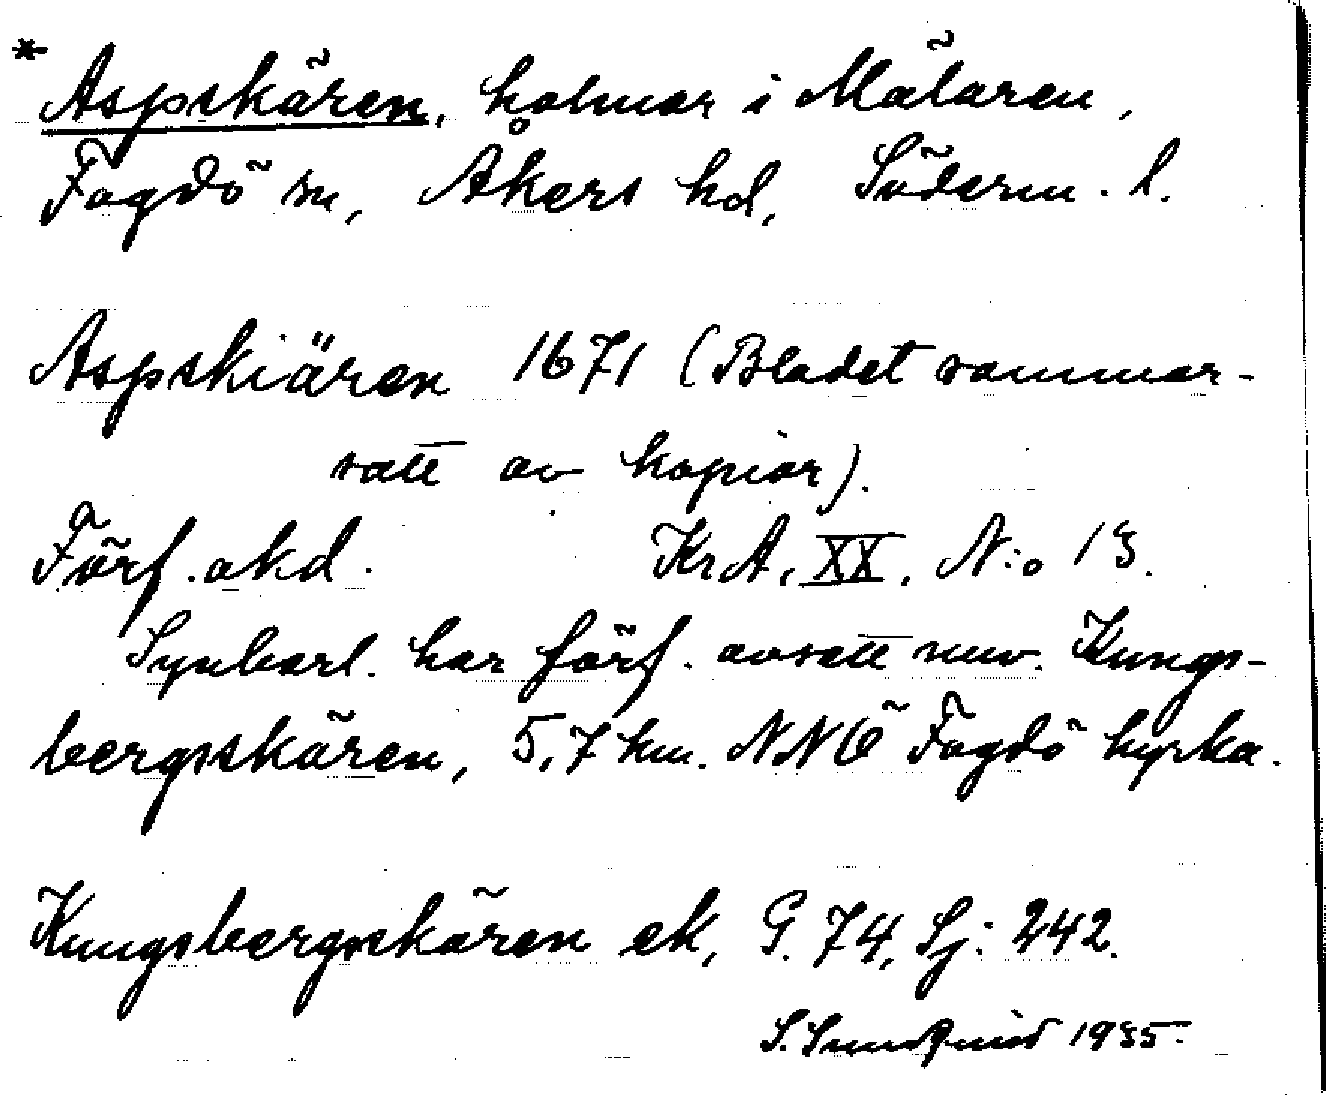 * Aspskären, holmar i Mälaren,
Fogdö sn, Åkers hd, Söderm. l.
Aspskiären 1671 (Bladet samman-
satt av kopior).
Förf. okd. KrA, XX, N:o 13.
Synbarl. har förf. avsett nuv. Kungs-
bergsskären, 5,7 km. NNÖ Fogdö kyrka.
Kungsbergsskären ek, G. 74, Sj: 242.
S. Sundquist 1935.